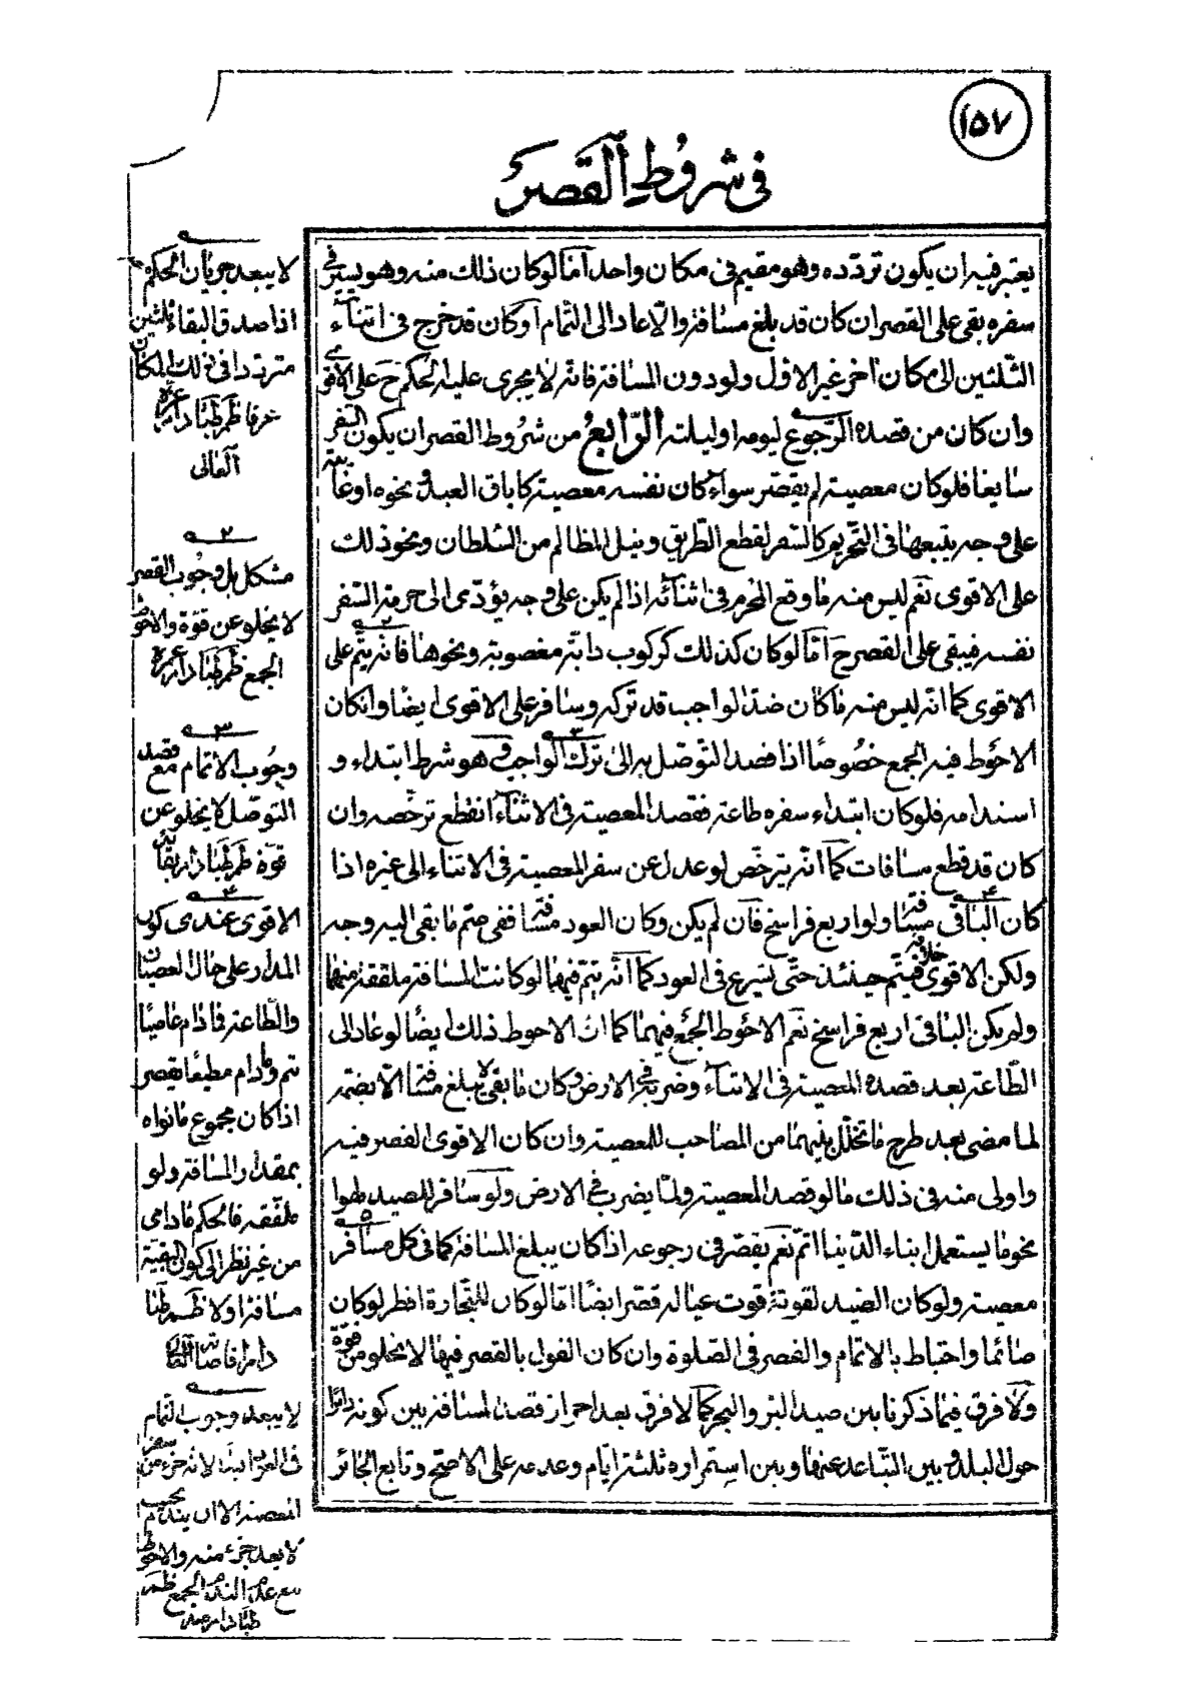 ١٥٧
في شروط القصر
يعتبر فيه ان يكون تردّده وهو مقيم في مكان واحد امّا لو كان ذلك منه وهو يسير في
سفره بقي على القصر ان كان قد بلغ مسافة والّا عاد الى التمام او كان قد خرج في اثناء
الثلثين الى مكان اخر غير الاول ولو دون المسافة فانّه لا يجرى عليه الحكم ح على الاقوى
وان كان من قصده الرّجوع ليومه او ليلته الرّابع من شروط القصر ان يكون السفر
سايغا فلو كان معصية لم يقصّر سواء كان نفسه معصية كاباق العبد ونحوه او غايته
على وجه يتبعها في التحريم كالسفر لقطع الطّريق ونيل المظالم من السّلطان ونحو ذلك
على الاقوى نعم ليس منه ما وقع المحرم في اثنائه اذا لم يكن على وجه يؤدّى الى حرمة السّفر
نفسه فيبقى على القصر ح امّا لو كان كذلك كركوب دابّة مغصوبة ونحوها فانّه يتمّ على
الاقوى كما انّه ليس منه ما كان ضدّ الواجب قد تركه وسافر على الاقوى ايضا وان كان
الاحوط فيه الجمع خصوصًا اذا قصد التوصّل به الى ترك الواجب وهو شرط ابتداء و
استدامه فلو كان ابتداء سفره طاعة فقصد المعصية في الاثناء انقطع ترخّصه وان
كان قد قطع مسافات كما انّه يترخّص لو عدل عن سفر المعصية في الاثناء الى غيره اذا
كان الباقي مسافة ولو اربع فراسخ فان لم يكن وكان العود مسافة ففي ضم ما بقى اليه وجه
ولكن الاقوى خلافه فيتم حينئذ حتّى يشرع في العود كما انّه يتم فيهما لو كانت المسافة ملفقة منهما
ولم يكن الباقي اربع فراسخ نعم الاحوط الجمع فيهما كما انّ الاحوط ذلك ايضًا لو عاد الى
الطّاعة بعد قصده المعصية في الاثناء وضربه في الارض وكان ما بقى لا يبلغ مسافة الّا بضمّه
لما مضى بعد طرح ما تخلّل بينهما من المصاحب للمعصية وان كان الاقوى القصر فيه
واولى منه في ذلك ما لو قصد المعصية ولمّا يضرب في الارض ولو سافر للصيد لهوا
نحو ما يستعمل ابناء الدّنيا اتمّ نعم يقصّر في رجوعه اذا كان يبلغ المسافة كما في كل مسافر
معصية ولو كان الصّيد لقوته وقوت عياله قصّر ايضًا امّا لو كان للتّجارة افطر لو كان
صائما واحتاط بالاتمام والقصر في الصّلوة وان كان القول بالقصر فيها لا يخلو من قوّة
ولا فرق فيما ذكرنا بين صيد البرّ والبحر كما لا فرق بعد احراز قصد المسافة بين كونه دائرا
حول البلد وبين التّباعد عنها وبين استمراره ثلثة ايّام وعدمه على الاصحّ وتابع الجائر
لا يبعد جريان الحكم
اذا صدق البقاء ثلثين
متردّدا في ذلك المكان
عرفا ظم طبا دام
العالى
٢
مشكل بل وجوب القصر
لا يخلو عن قوّة والاحوط
الجمع ظم طبا دام عزه
٣
وجوب الاتمام مع قصد
التوصّل لا يخلو عن
قوّة ظم طبا دام بقائه
٤
الاقوى عندى كون
المدار على حال العصيان
والطّاعة فما دام عاصيًا
يتم وما دام مطيعًا يقصر
اذا كان مجموع ما نواه
بمقدار المسافة ولو
ملفّقه فالحكم ما دامى
من غير نظر الى كون البقية
مسافة اولا ظم طبا
دام افاضاته
٥
لا يبعد وجوب التمام
في العود ايضًا لانّه جزء من سفر
المعصية الّا ان يندم بحيث
لا يعد جزء منه والاحوط
مع عدم الندم الجمع ظم
طبا دام